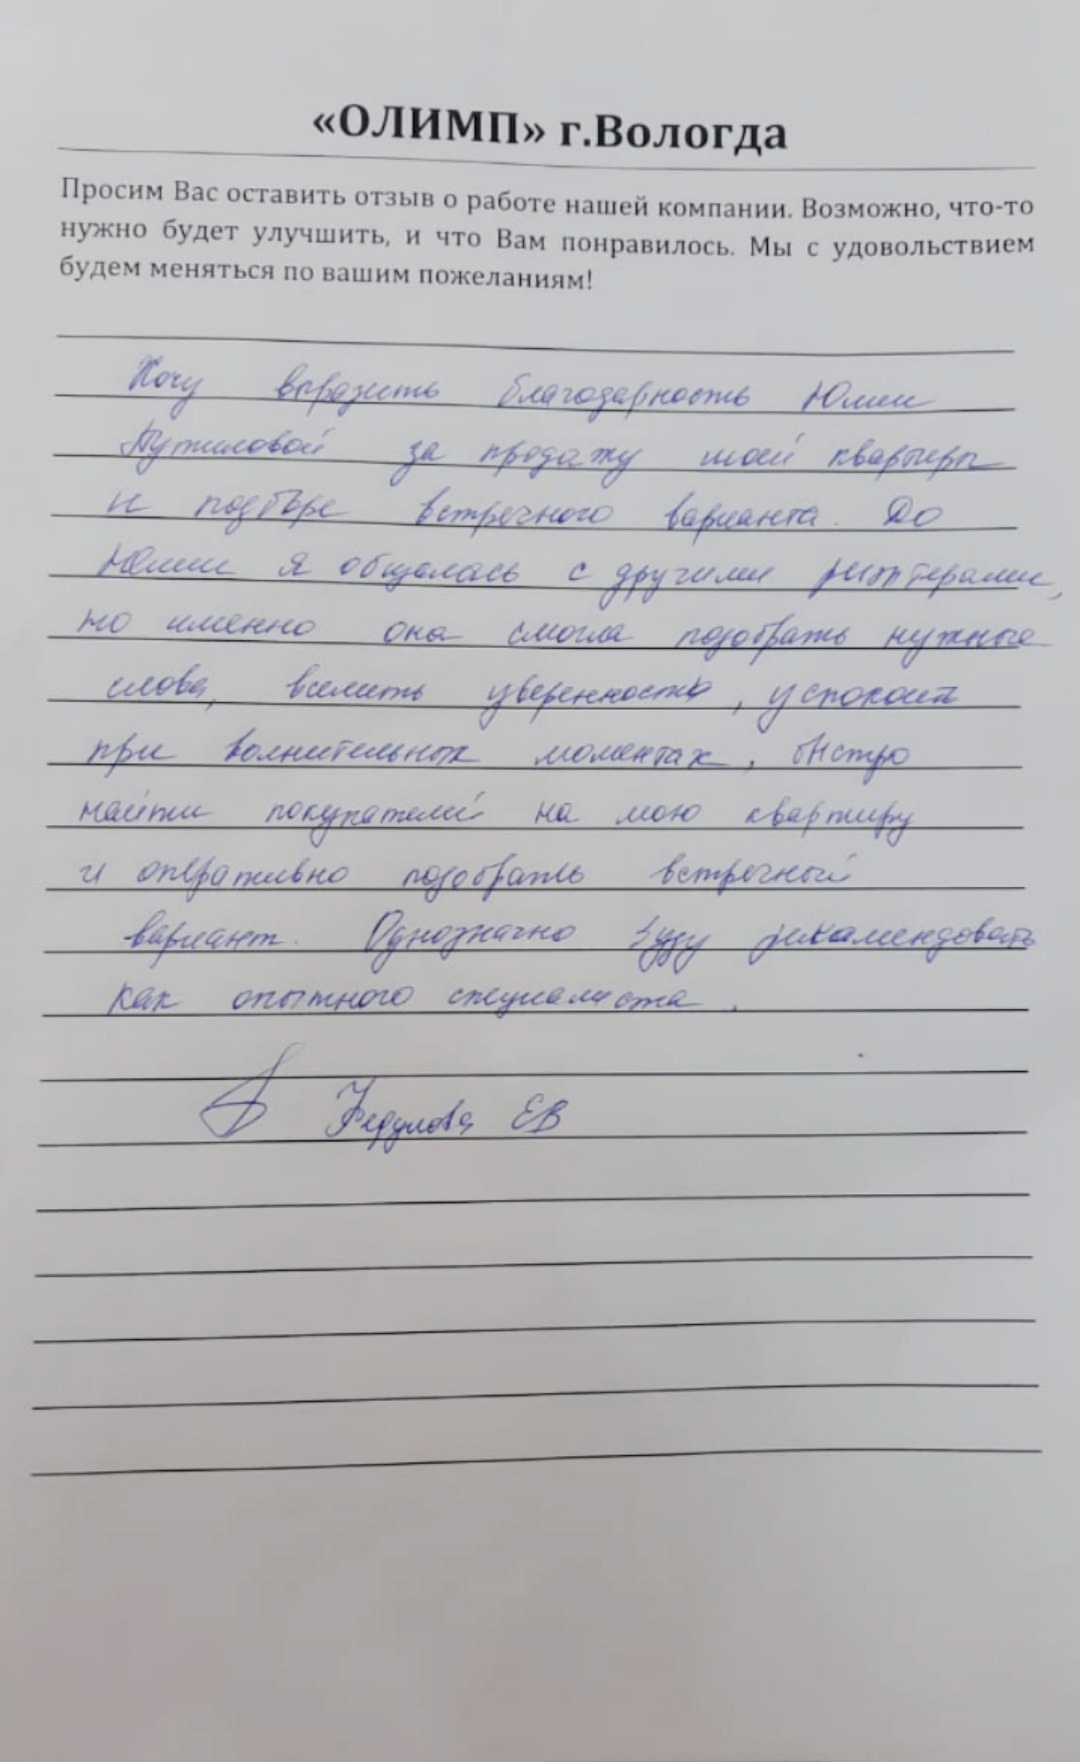 «ОЛИМП» г.Вологда
Просим Вас оставить отзыв о работе нашей компании. Возможно, что-то
нужно будет улучшить, и что Вам понравилось. Мы с удовольствием
будем меняться по вашим пожеланиям!
Хочу выразить благодарность Юлии
Путиловой за продажу моей квартиры
и подборе встречного варианта. До
Юлии я общалась с другими риэлтерами,
но именно она смогла подобрать нужные
слова, вселить уверенность, успокоить
при волнительных моментах, быстро
найти покупателей на мою квартиру
и оперативно подобрать встречный
вариант. Однозначно буду рекомендовать
как опытного специалиста.
Федулова ЕВ